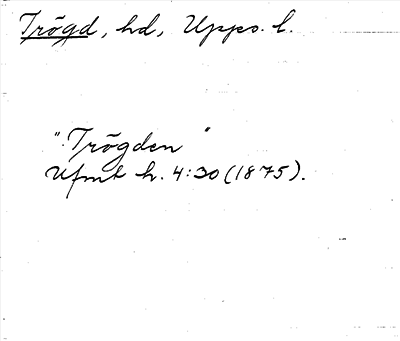 Trögd, hd, Upps. l.
"Trögden"
Ufmt h. 4:30 (1875).